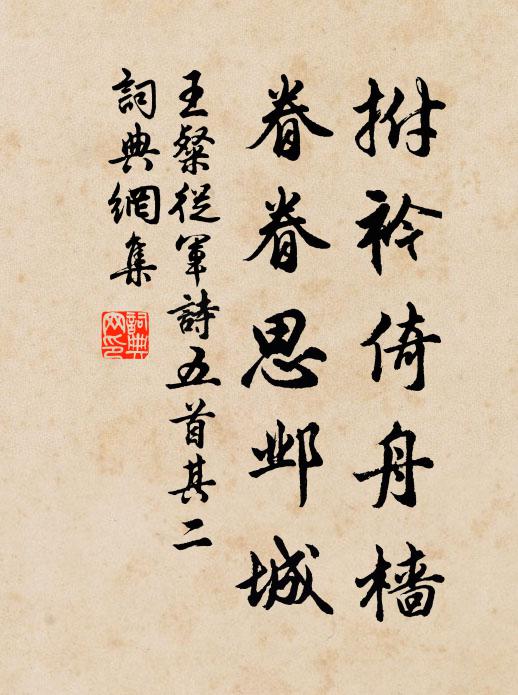 拊衿倚舟檣
眷眷思邺城
王粲從軍詩五首其二
詞典網集
詞典網印